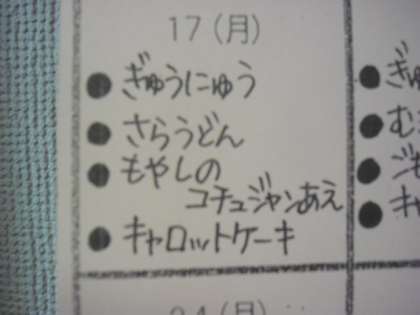 17(月)
●ぎゅうにゅう
●さらうどん
●もやしの
コチュジャンあえ
●キャロットケーキ
●ぎゅ
●む
●
●キャ
24(月)